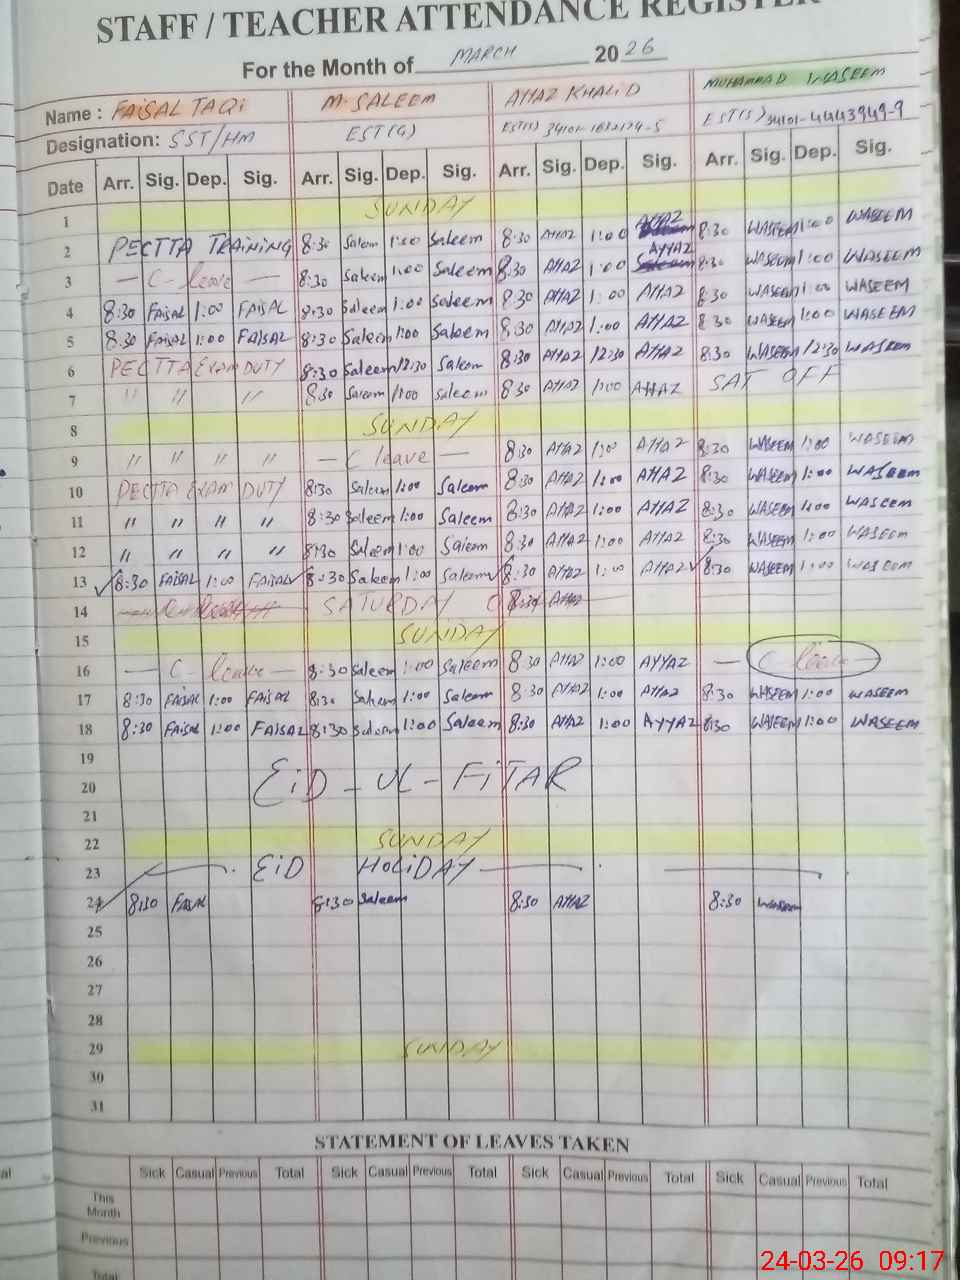 STAFF / TEACHER ATTENDANCE REGISTER
For the Month of MARCH 2026
Name : FAISAL TAQI M. SALEEM AYYAZ KHALID MUHAMMAD WASEEM
Designation: SST/HM EST(G) EST(S) EST(S) 34101-4443949-9
Date Arr. Sig. Dep. Sig. Arr. Sig. Dep. Sig. Arr. Sig. Dep. Sig. Arr. Sig. Dep. Sig.
1 SUNDAY
2 PECTTA TRAINING 8:30 Saleem 1:00 Saleem 8:30 AYYAZ 1:00 AYYAZ 8:30 WASEEM 1:00 WASEEM
3 — C- leave — 8:30 Saleem 1:00 Saleem 8:30 AYYAZ 1:00 AYYAZ 8:30 WASEEM 1:00 WASEEM
4 8:30 FAISAL 1:00 FAISAL 8:30 Saleem 1:00 Saleem 8:30 AYYAZ 1:00 AYYAZ 8:30 WASEEM 1:00 WASEEM
5 8:30 FAISAL 1:00 FAISAL 8:30 Saleem 1:00 Saleem 8:30 AYYAZ 1:00 AYYAZ 8:30 WASEEM 1:00 WASEEM
6 PECTTA EXAM DUTY 8:30 Saleem 12:30 Saleem 8:30 AYYAZ 12:30 AYYAZ 8:30 WASEEM 12:30 WASEEM
7 " " " 8:30 Saleem 1:00 Saleem 8:30 AYYAZ 1:00 AYYAZ SAT OFF
8 SUNDAY
9 " " " " — C leave — 8:30 AYYAZ 1:00 AYYAZ 8:30 WASEEM 1:00 WASEEM
10 PECTTA EXAM DUTY 8:30 Saleem 1:00 Saleem 8:30 AYYAZ 1:00 AYYAZ 8:30 WASEEM 1:00 WASEEM
11 " " " " 8:30 Saleem 1:00 Saleem 8:30 AYYAZ 1:00 AYYAZ 8:30 WASEEM 1:00 WASEEM
12 " " " " 8:30 Saleem 1:00 Saleem 8:30 AYYAZ 1:00 AYYAZ 8:30 WASEEM 1:00 WASEEM
13 8:30 FAISAL 1:00 FAISAL 8:30 Saleem 1:00 Saleem 8:30 AYYAZ 1:00 AYYAZ 8:30 WASEEM 1:00 WASEEM
14 SATURDAY 8:30 AYYAZ
15 SUNDAY
16 — C- leave — 8:30 Saleem 1:00 Saleem 8:30 AYYAZ 1:00 AYYAZ — C- leave —
17 8:30 FAISAL 1:00 FAISAL 8:30 Saleem 1:00 Saleem 8:30 AYYAZ 1:00 AYYAZ 8:30 WASEEM 1:00 WASEEM
18 8:30 FAISAL 1:00 FAISAL 8:30 Saleem 1:00 Saleem 8:30 AYYAZ 1:00 AYYAZ 8:30 WASEEM 1:00 WASEEM
19
20 EID - UL - FITAR
21
22 SUNDAY
23 EID HOLIDAY
24 8:30 FAISAL 8:30 Saleem 8:30 AYYAZ 8:30 WASEEM
25
26
27
28
29 SUNDAY
30
31
STATEMENT OF LEAVES TAKEN
Sick Casual Previous Total Sick Casual Previous Total Sick Casual Previous Total Sick Casual Previous Total
This Month
Previous
Total
24-03-26 09:17